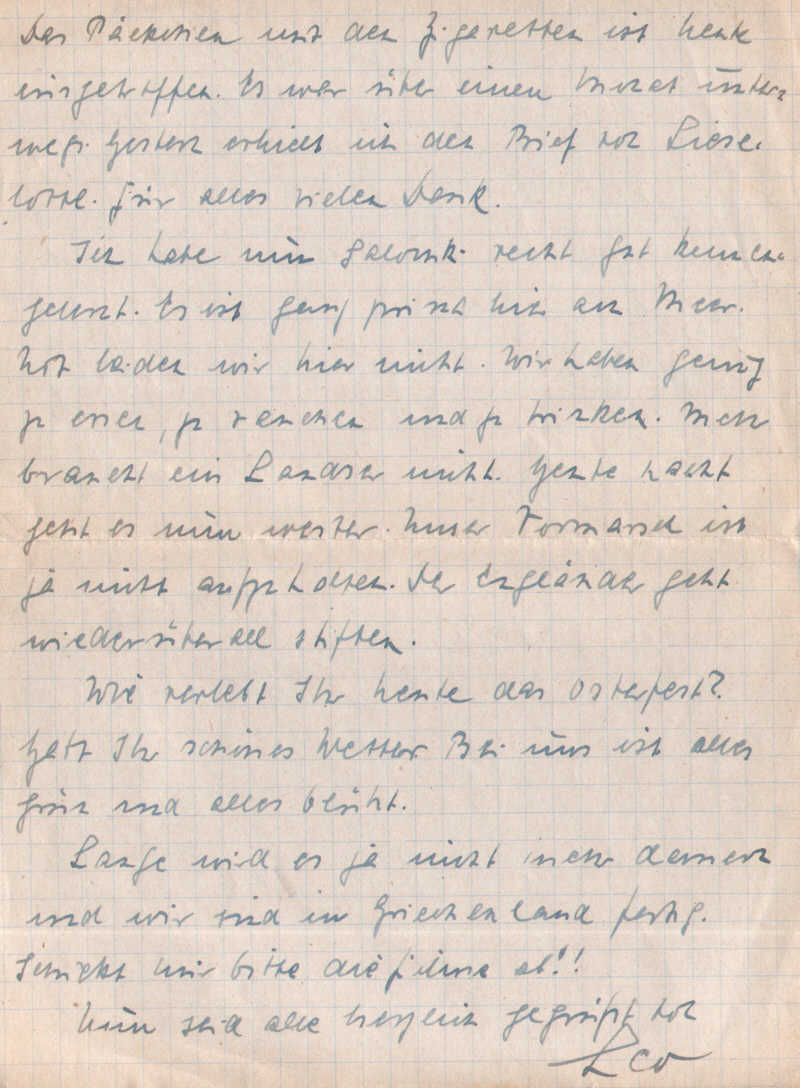 Das Päckchen mit den Zigaretten ist heute
eingetroffen. Es war über einen Monat unter-
wegs. Gestern erhielt ich den Brief von Liese-
lotte. Für alles vielen Dank.
Ich habe nun Saloniki recht gut kennen-
gelernt. Es ist ganz hier am Meer.
Not leiden wir hier nicht. Wir haben genug
zu essen, zu rauchen und zu trinken. Mehr
braucht ein Landser nicht. Heute nacht
geht es nun weiter. Unser Vormarsch ist
ja nicht aufzuhalten. Der Engländer geht
wieder überall stiften.
Wie verlebt Ihr heute das Osterfest?
Habt Ihr schönes Wetter Bei uns ist alles
grün und alles blüht.
Lange wird es ja nicht mehr dauern
und wir sind in Griechenland fertig.
Schickt mir bitte die Filme ab!!
Nun seid alle herzlich gegrüßt von
Leo